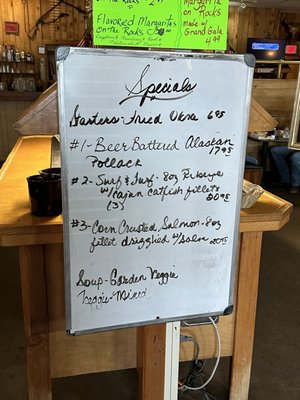 Flavored Margaritas
on the Rocks
on Rocks
made w/
Grand Gala
4.99
Specials
Starters-Fried Okra 6.95
#1-Beer Battered Alaskan
Pollock 17.95
#2-Surf & Turf-8oz Ribeye
w/Cajun Catfish fillets
(3) 20.95
#3-Corn Crusted Salmon-8oz
fillet drizzled w/
Soup-Garden Veggie
Veggie-Mixed